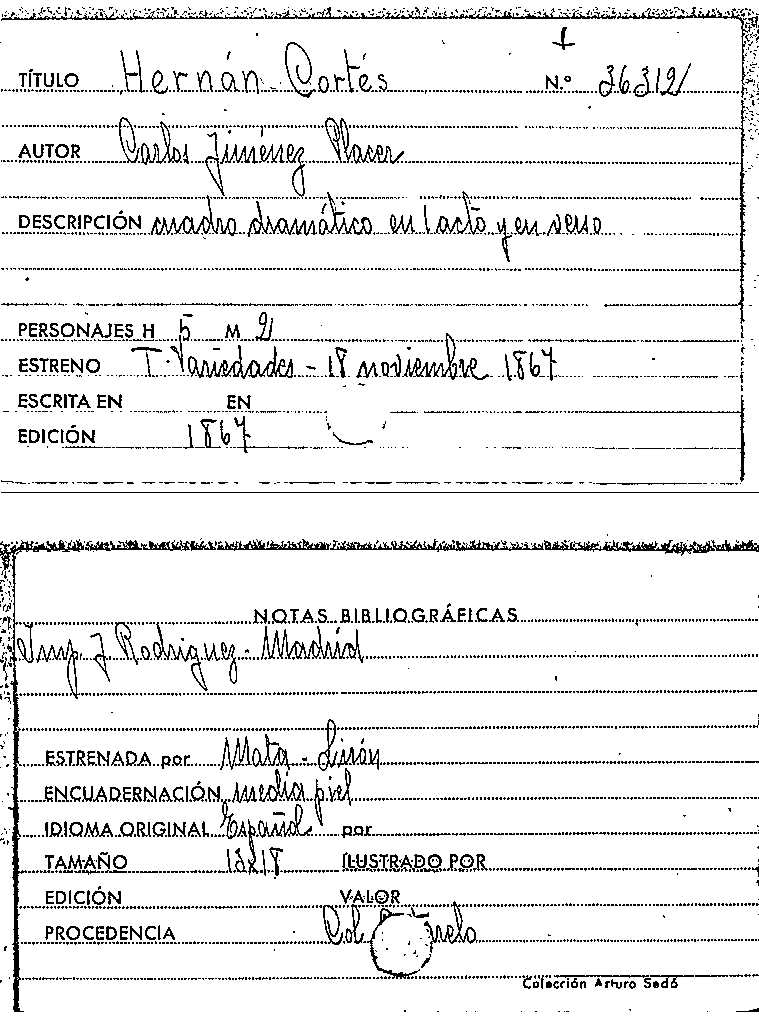 TÍTULO Hernán Cortés N.º 36312/
AUTOR Carlos Jiménez Placer
DESCRIPCIÓN cuadro dramático en 1 acto y en verso
PERSONAJES H 5 M 2
ESTRENO T. Variedades - 18 noviembre 1867
ESCRITA EN EN
EDICIÓN 1867
NOTAS BIBLIOGRÁFICAS
Imp. J. Rodriguez - Madrid
ESTRENADA por Mata - Lirón
ENCUADERNACIÓN media piel
IDIOMA ORIGINAL Español por
TAMAÑO 13x18 ILUSTRADO POR
EDICIÓN VALOR
PROCEDENCIA Col.
Colección Arturo Sedó